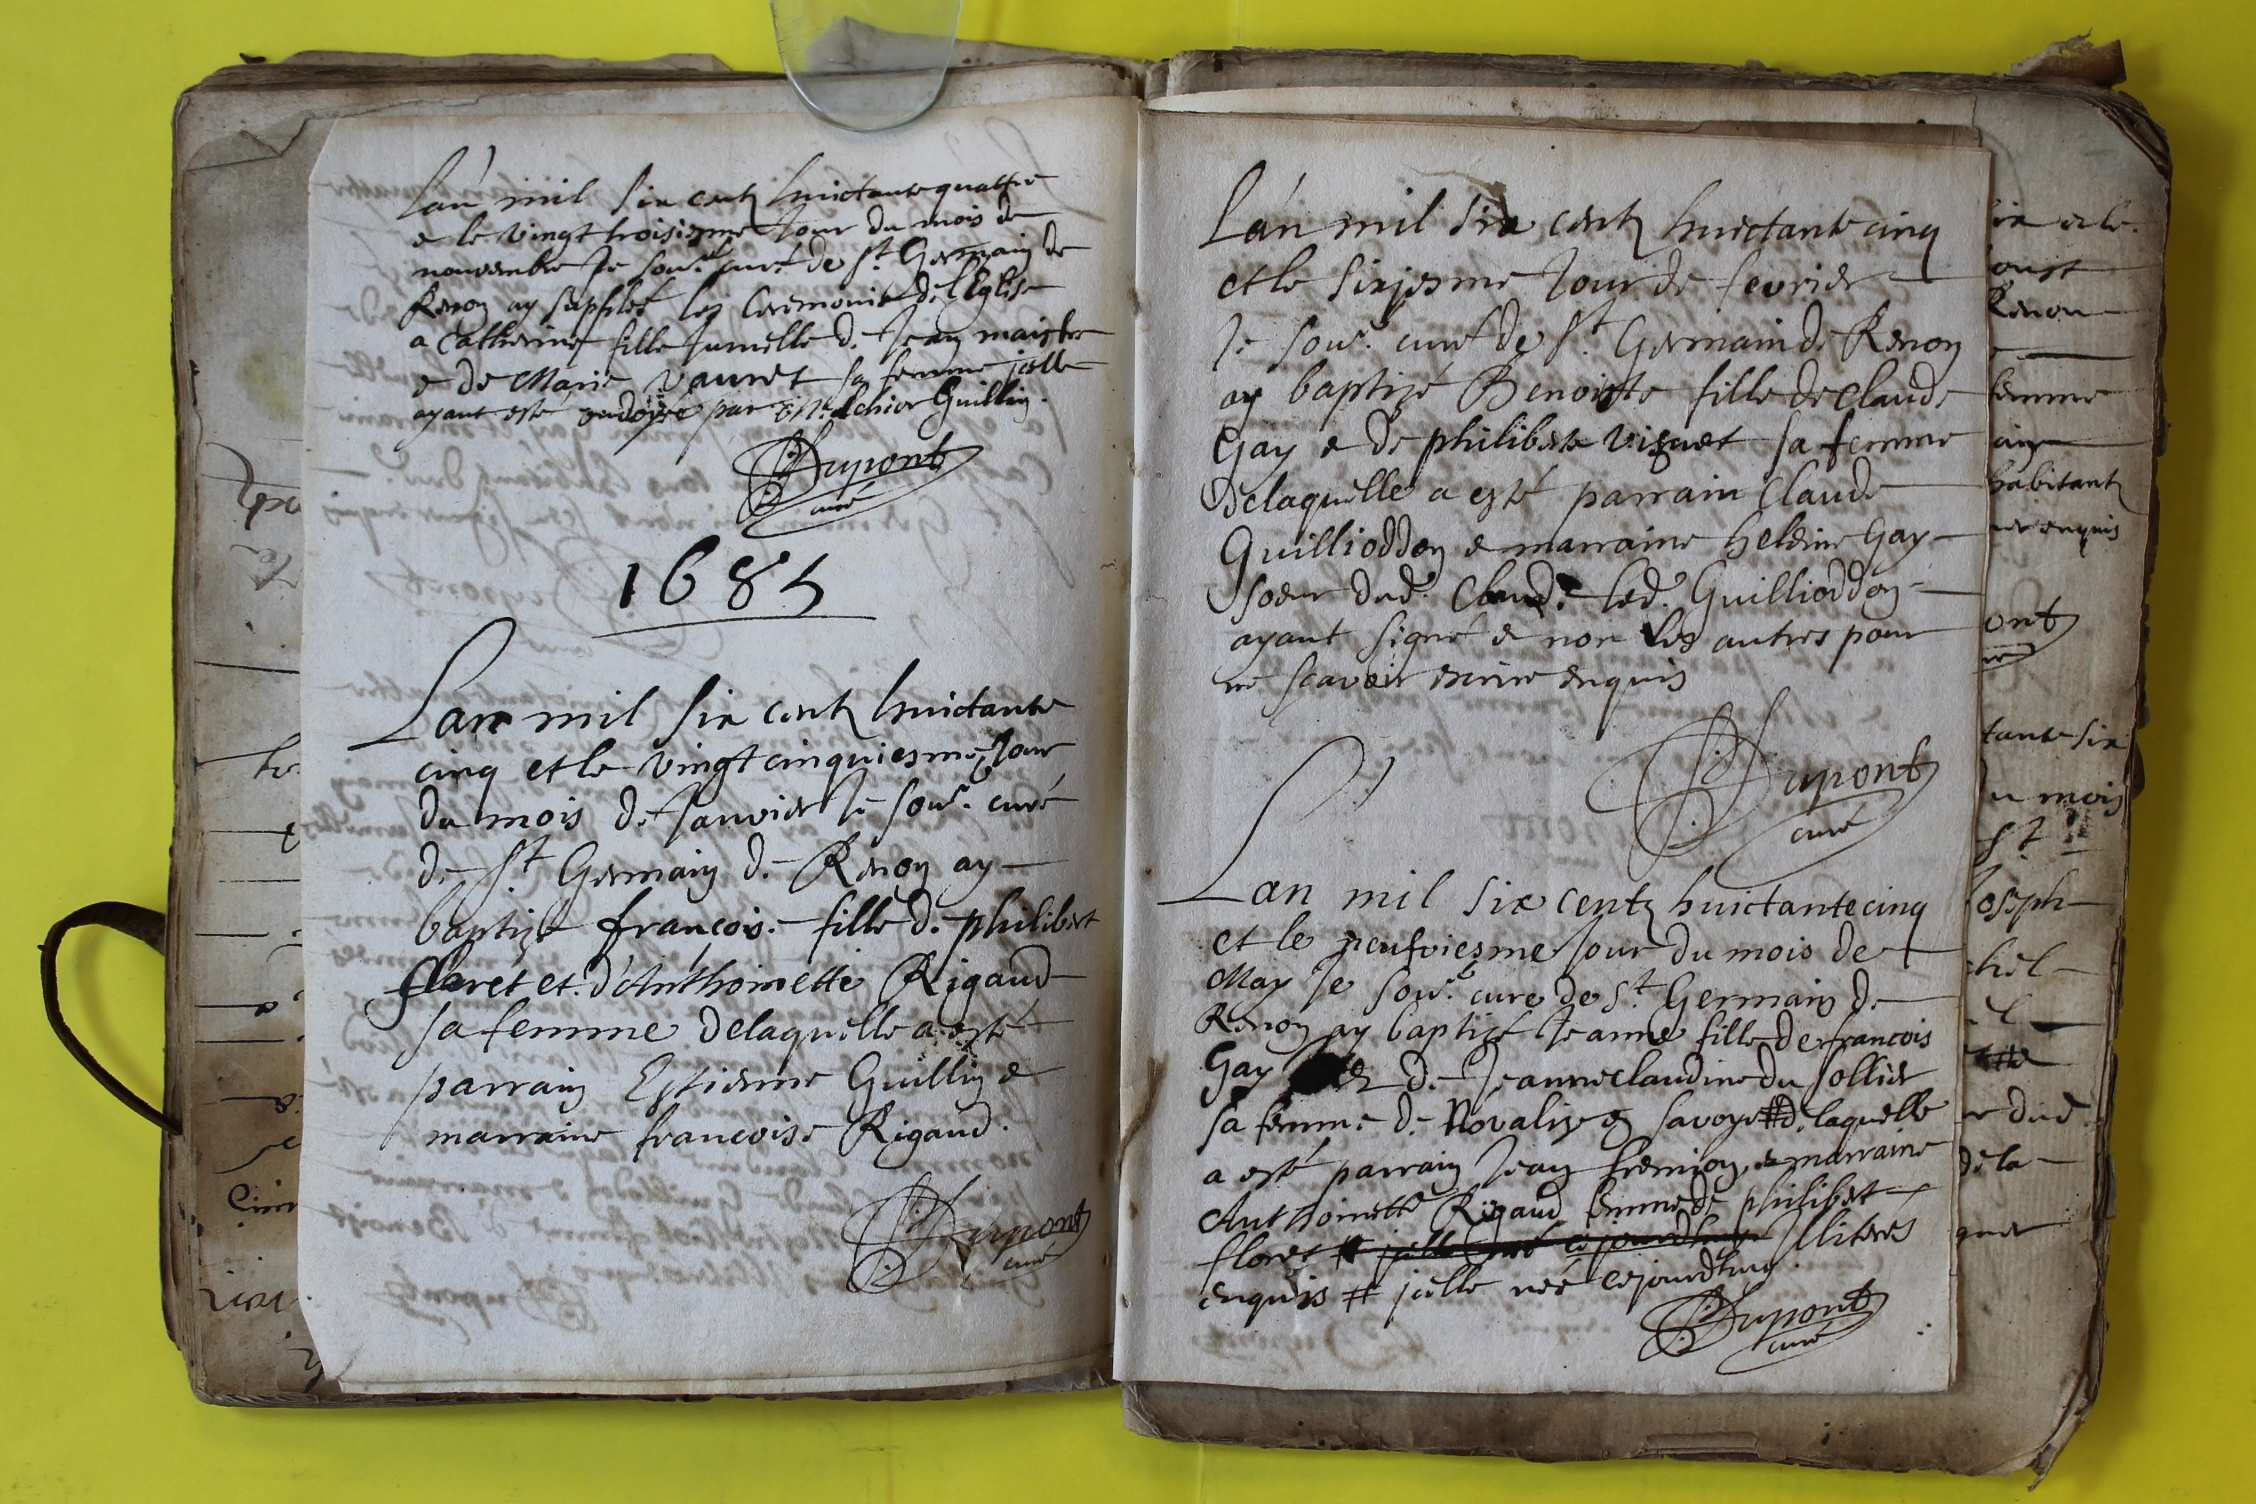 Lan mil six centz huictante quattre
& le vingt troisiesme Jour du mois de
novembre Je sou.é curé de S.t Germain de
Renon ay supplée les Ceremonies de l'Eglise
a Catherine fille Jumelle de Jean maistre
& de Marie Vauret sa femme jcelle
ayant esté ondoyée par Guillin.
Dupont
curé
1685
Lan mil six centz huictante
cinq et le vingtcinquiesme Jour
du mois de Janvier Je sou.é curé
de S.t Germain de Renon ay
baptizé francoise fille de philibert
floret et d'Anthoinette Rigaud
sa femme delaquelle a esté
parrain Estienne Guillin &
marraine francoise Rigaud.
Dupont
curé
Lan mil six centz huictante cinq
et le sixjesme Jour de fevrier
Je sou.é curé de S.t Germain de Renon
ay baptizé Benoiste fille de Claude
Gay & de philiberte Viguet sa femme
delaquelle a esté parrain Claude
Guillioddon & marraine heleine Gay
soeur dud. Claude led. Guillioddon
ayant signé & non les autres pour
ne scavoir escrire enquis
Dupont
curé
Lan mil six centz huictante cinq
et le neufviesme Jour du mois de
May Je sou.é curé de S.t Germain de
Renon ay baptizé Jeanne fille de francois
Gay & de Jeanne claudine du sollier
sa femme de Novalize en Savoye # de laquelle
a esté parrain Jean fremion & marraine
Anthoinette Rigaud femme de philibert
floret # jcelle née cejourdhuy Illiterés
enquis # jcelle née cejourdhuy.
Dupont
curé
ix et le
oust
Renon
femme
ain
habitantz
ner enquis
ont
tante six
du mois
S.t
Joseph
chel
dud.
de la
gner